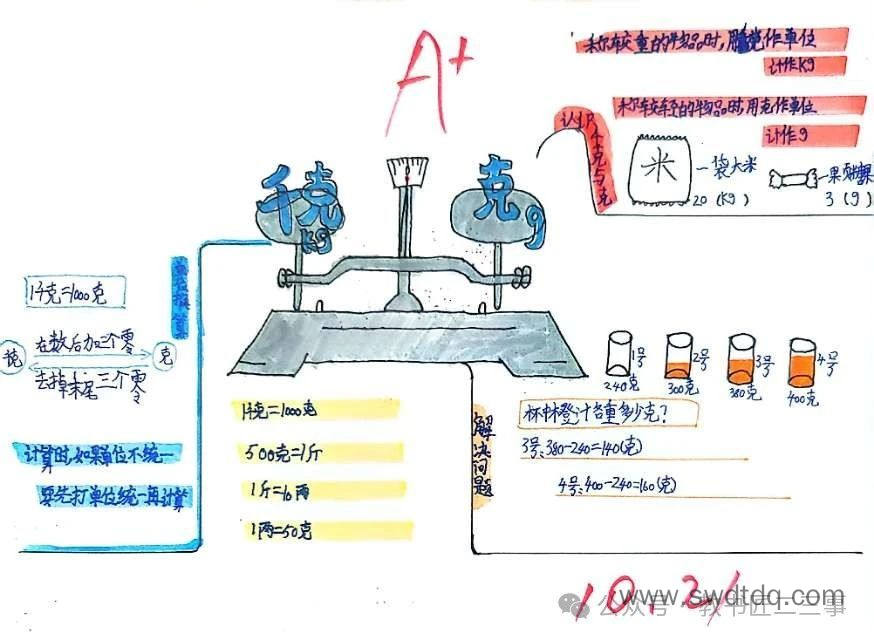 A+
称较重的物品时,用千克作单位
计作Kg
称较轻的物品时,用克作单位
计作g
认识千克与克
米
一袋大米
20 (Kg)
一果糖果
3 (g)
千克
kg
克
g
单位换算
1千克=1000克
千克
在数后加三个零
克
去掉末尾三个零
计算时,如果单位不统一
要先打单位统一再计算
1千克=1000克
500克=1斤
1斤=10两
1两=50克
1号
240克
2号
300克
3号
380克
4号
400克
解决问题
3号:380-240=140(克)
4号:400-240=160(克)
10.21
www.swdtdq.com
公众号·教书匠二三事